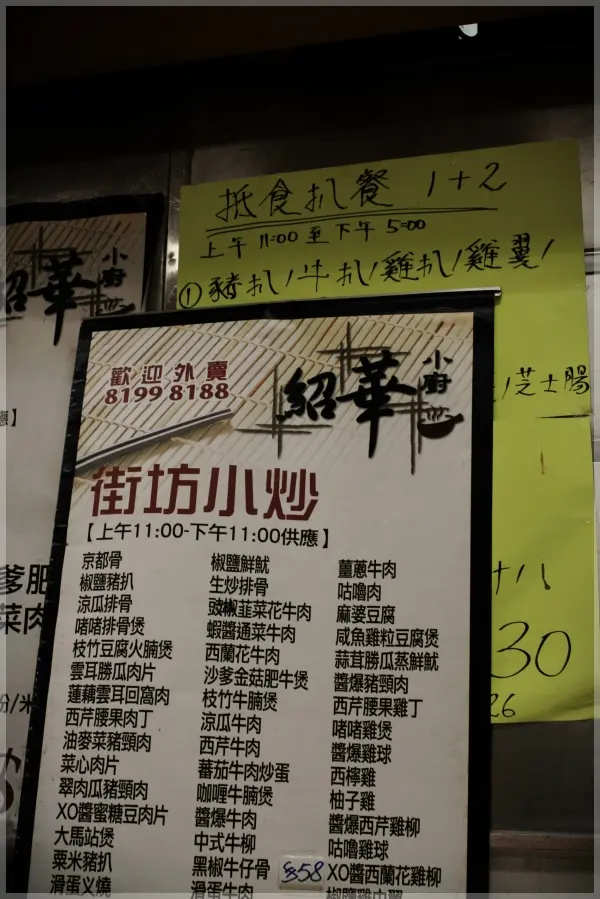 抵食扒餐 1+2
上午 11:00 至下午 5:00
①豬扒/牛扒/雞扒/雞翼/
/芝士腸
30
26
紹華
小廚
歡迎外賣
8199 8188
紹華
小廚
街坊小炒
【上午11:00-下午11:00供應】
京都骨
椒鹽豬扒
涼瓜排骨
啫啫排骨煲
枝竹豆腐火腩煲
雲耳勝瓜肉片
蓮藕雲耳回窩肉
西芹腰果肉丁
油麥菜豬頸肉
菜心肉片
翠肉瓜豬頸肉
XO醬蜜糖豆肉片
大馬站煲
粟米豬扒
滑蛋义燒
椒鹽鮮魷
生炒排骨
豉椒韮菜花牛肉
蝦醬通菜牛肉
西蘭花牛肉
沙爹金菇肥牛煲
枝竹牛腩煲
涼瓜牛肉
西芹牛肉
蕃茄牛肉炒蛋
咖喱牛腩煲
醬爆牛肉
中式牛柳
黑椒牛仔骨
滑蛋牛肉
薑蔥牛肉
咕嚕肉
麻婆豆腐
咸魚雞粒豆腐煲
蒜茸勝瓜蒸鮮魷
醬爆豬頸肉
西芹腰果雞丁
啫啫雞煲
醬爆雞球
西檸雞
柚子雞
醬爆西芹雞柳
咕嚕雞球
XO醬西蘭花雞柳
椒鹽雞中翼
$58
爹肥
菜肉
粉/米